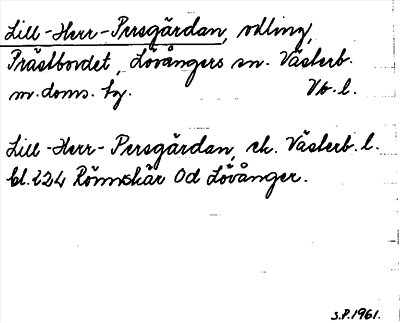 Lill-Herr-Persgärdan, odling,
Prästbordet, Lövångers sn. Västerb.
n. doms. fg. Vb. l.
Lill-Herr-Persgärdan, ek. Västerb. l.
bl. 224 Rönnskär Od Lövånger.
S.P. 1961.